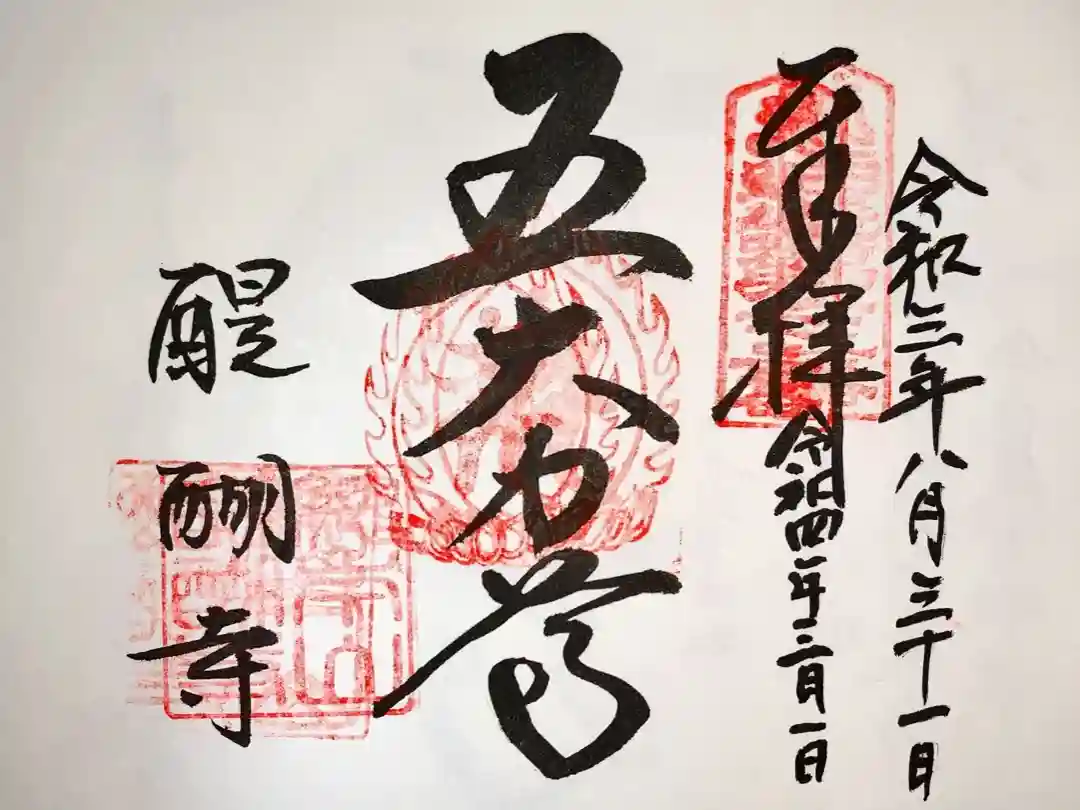 令和三年八月三十一日
奉拝
令和四年二月一日
五大力尊
醍醐寺